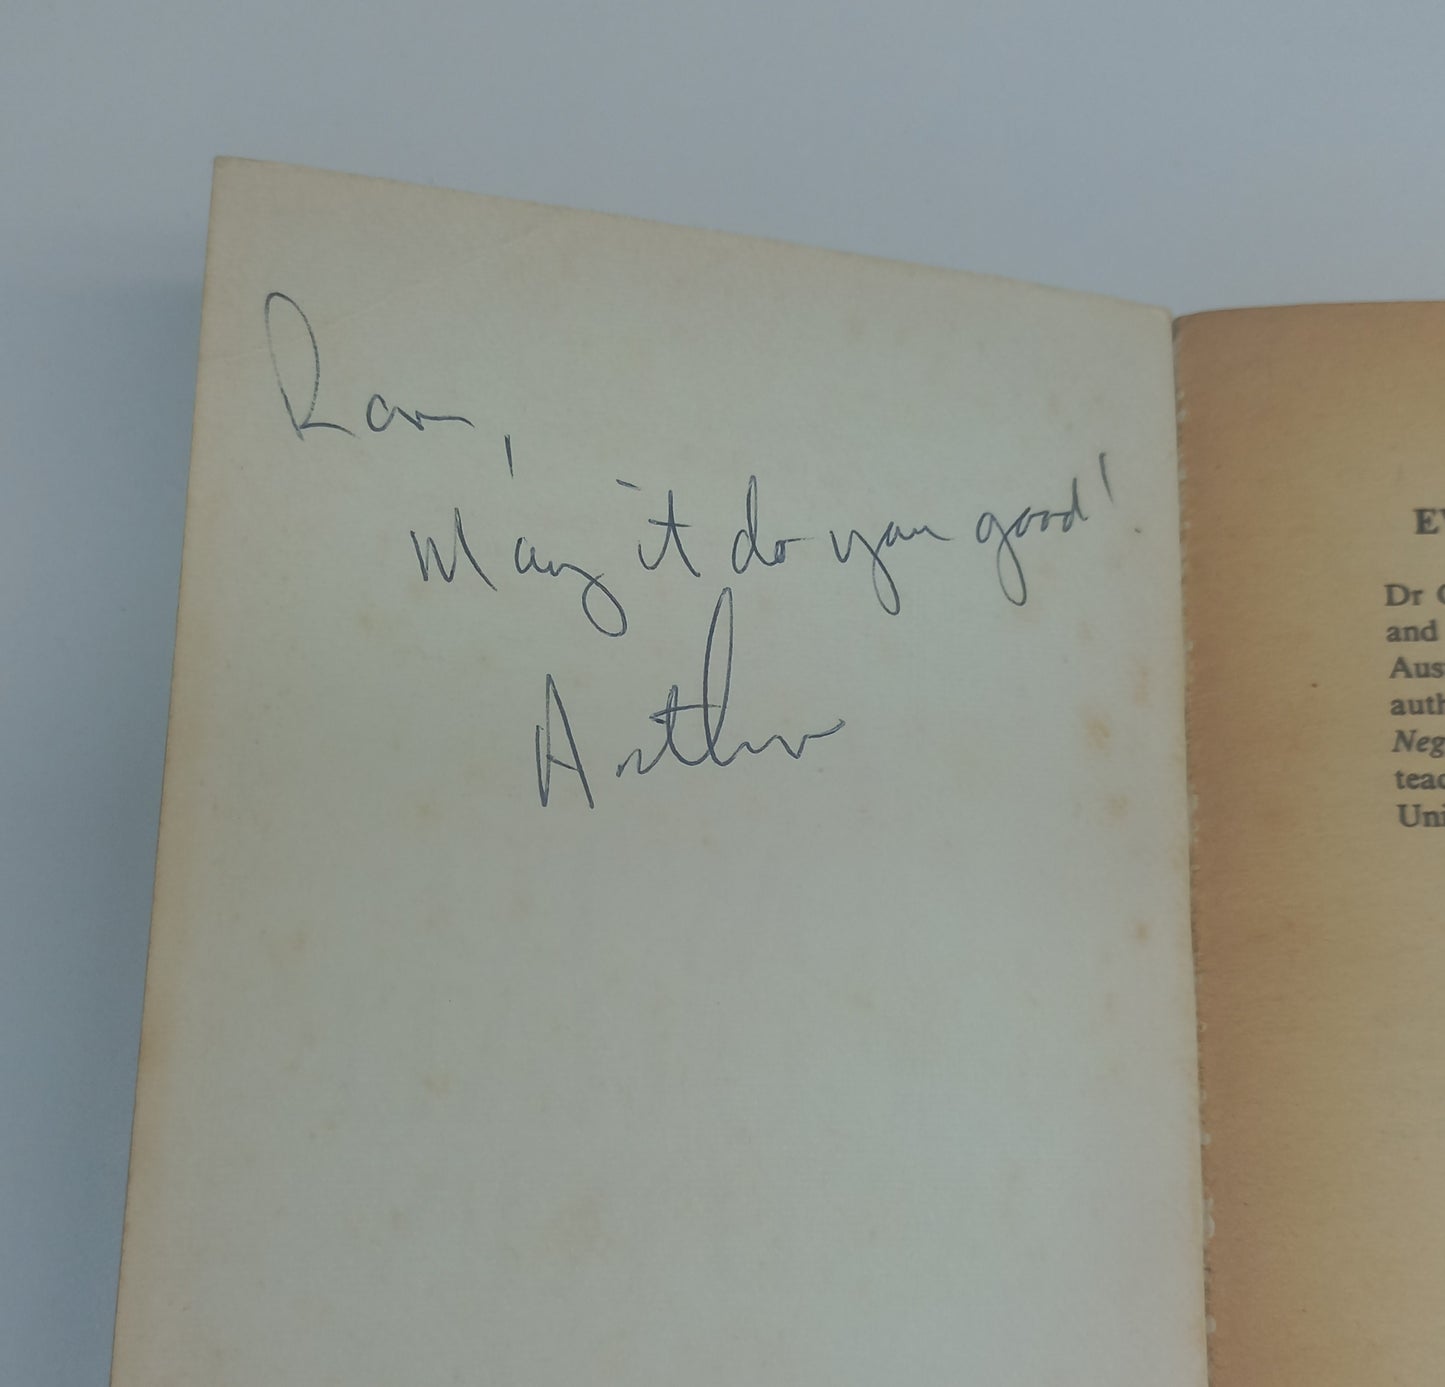 Ram,
May it do you good!
Arthur
Dr
and
Aus
auth
Neg
teac
Uni